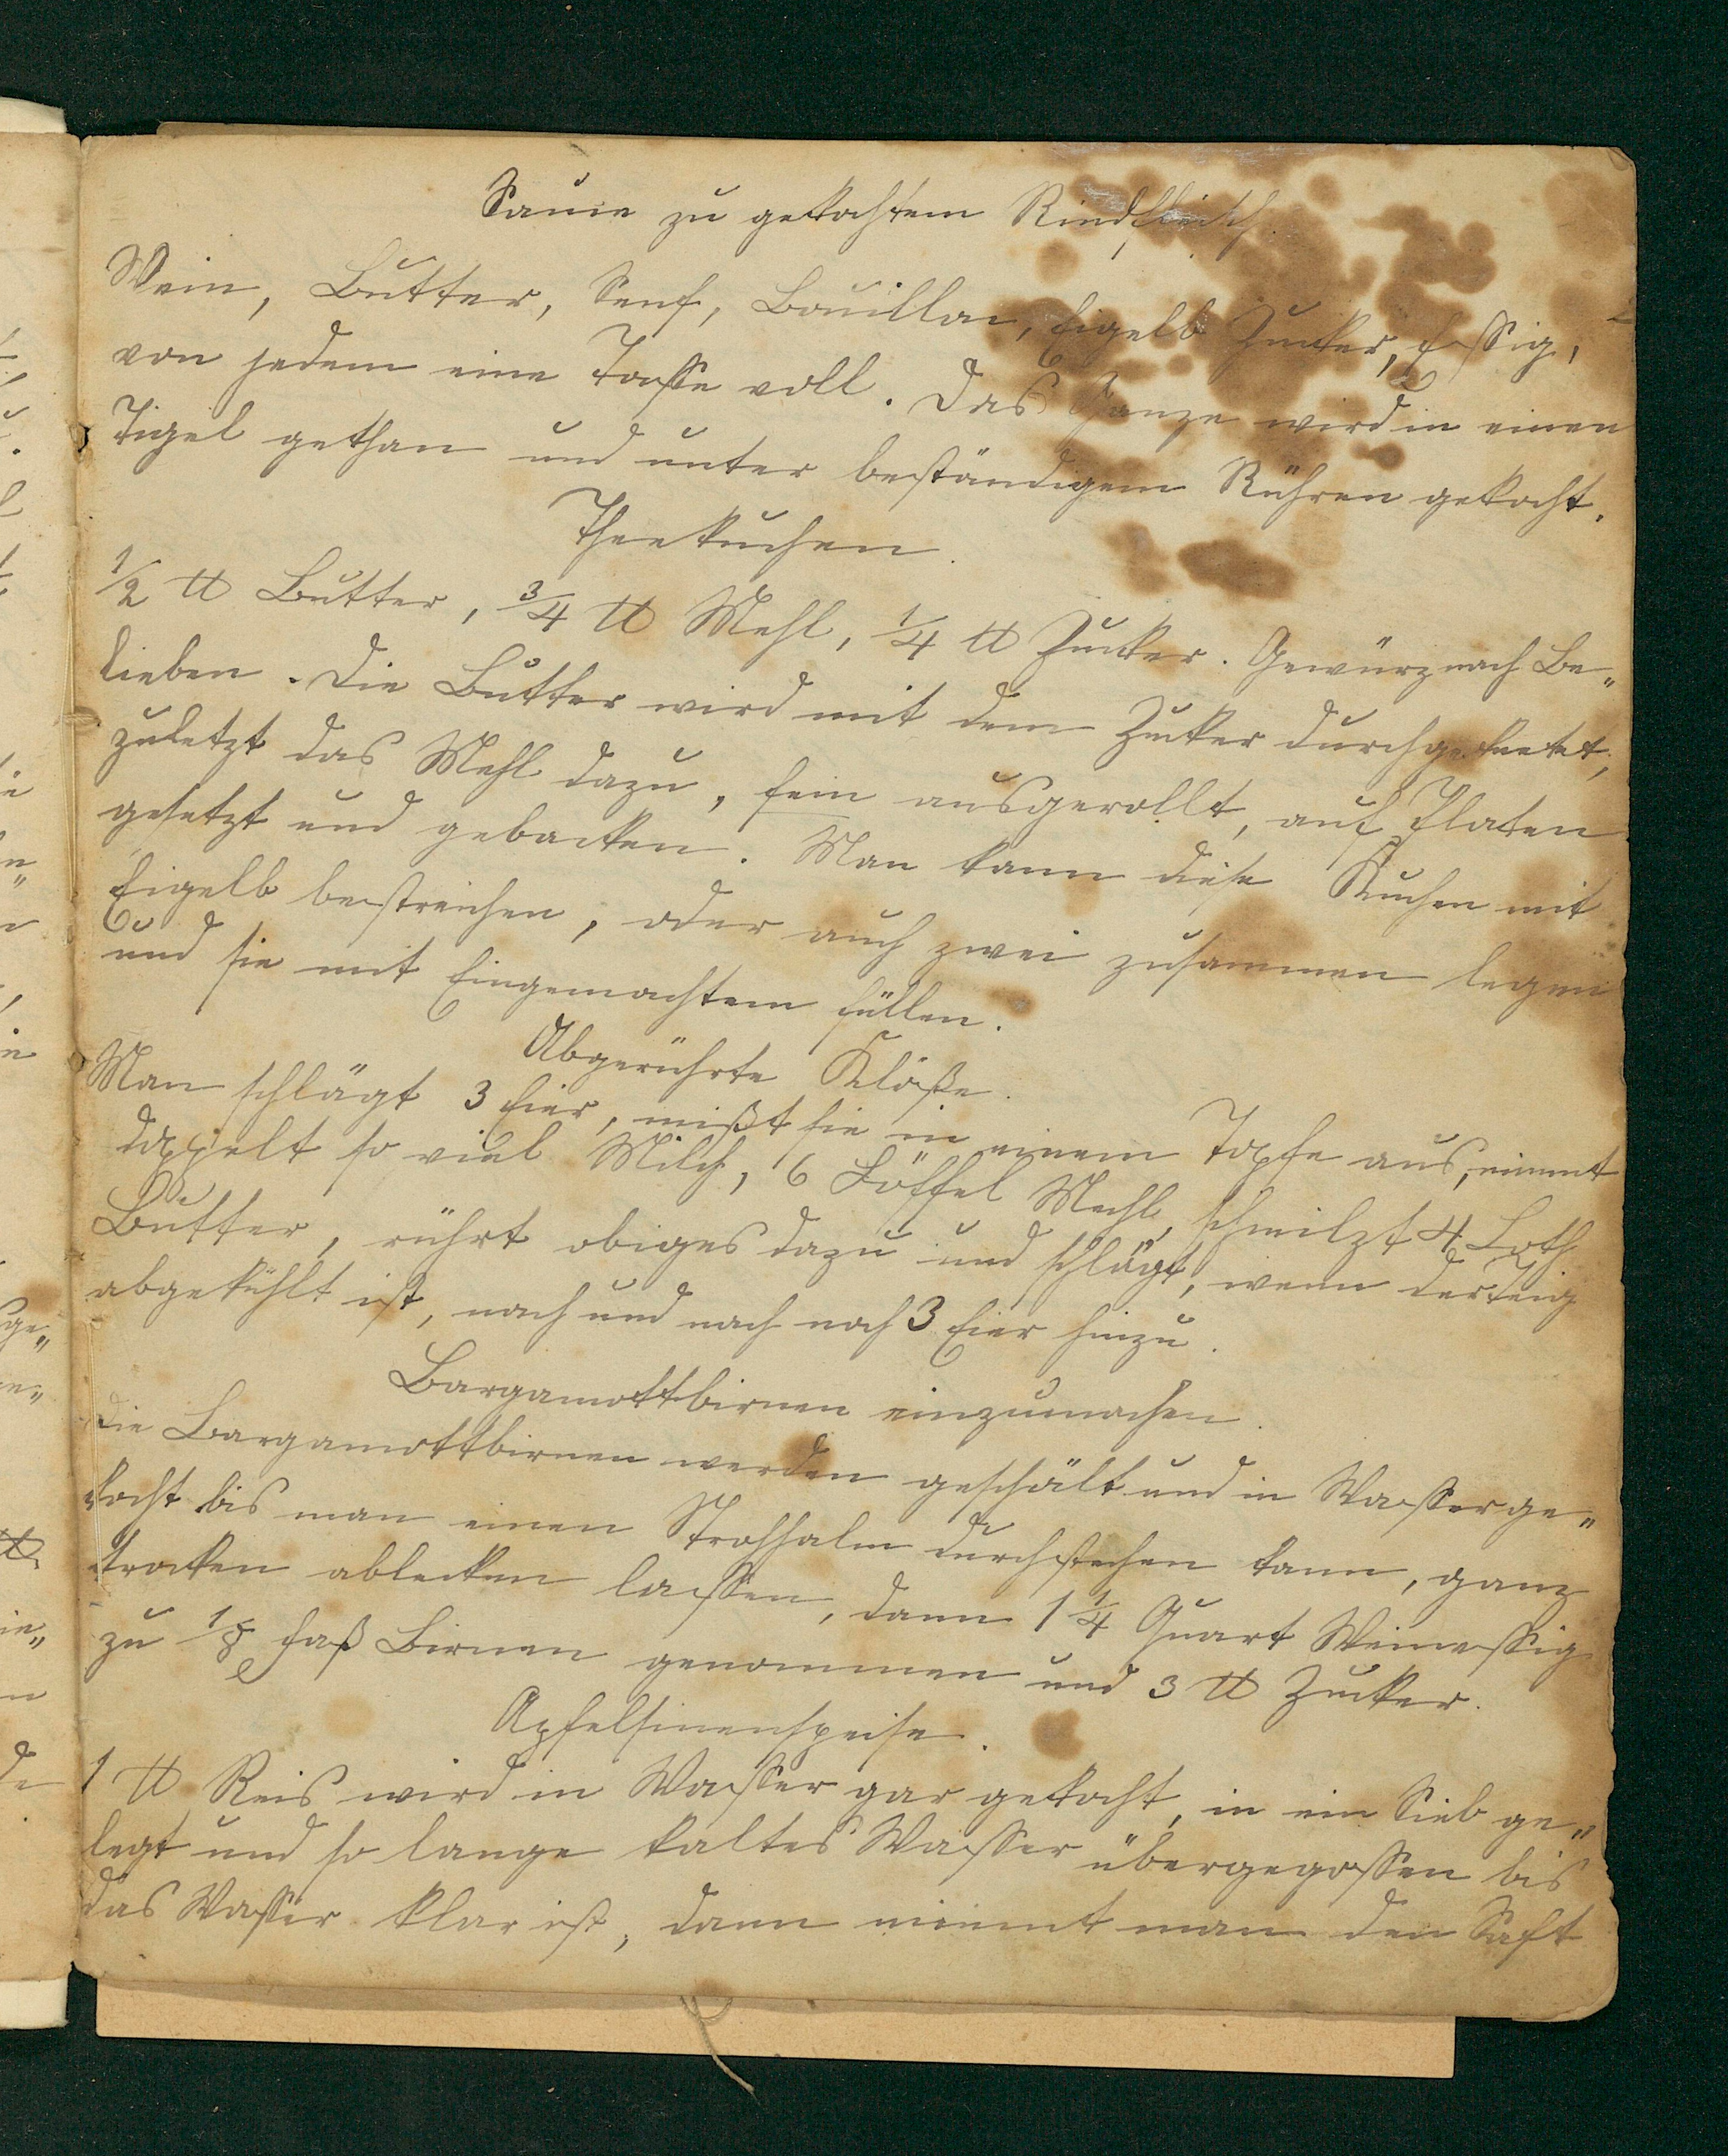 Sauce zu gekochtem Rindfleisch.
Wein, Butter, Senf, Bouillon, Eigelb Zucker, Essig,
von jedem eine Tasse voll. Das Ganze wird in einen
Tigel gethan und unter beständigem Rühren gekocht.
Theekuchen.
1/2 ℔ Butter, 3/4 ℔ Mehl, 1/4 ℔ Zucker. Gewürz nach Be„
lieben. Die Butter wird mit dem Zucker durchgeknetet,
zuletzt das Mehl dazu, fein ausgerollt, auf Platen
gesetzt und gebacken. Man kann diese Kuchen mit
Eigelb bestreichen, oder auch zwei zusammen legen
und sie mit Eingemachtem füllen.
Abgerührte Klöße.
Man schlägt 3 Eier, mißt sie in einem Topfe aus, nimmt
doppelt so viel Milch, 6 Löffel Mehl, schmilzt 4 Loth
Butter, rührt obiges dazu und schlägt, wenn der Teig
abgekühlt ist, nach und nach noch 3 Eier hinzu.
Bargamottbirnen einzumachen.
Die Bargamottbirnen werden geschält und in Wasser ge„
kocht bis man einen Strohhalm durchstechen kann, ganz
trocken ablecken lassen, dann 1 1/4 Quart Weinessig
zu 1/8 Faß Birnen genommen und 3 ℔ Zucker.
Apfelsinenspeise.
1 ℔ Reis wird in Wasser gar gekocht, in ein Sieb ge„
legt und so lange kaltes Wasser übergegossen bis
das Wasser klar ist, dann nimmt man den Saft